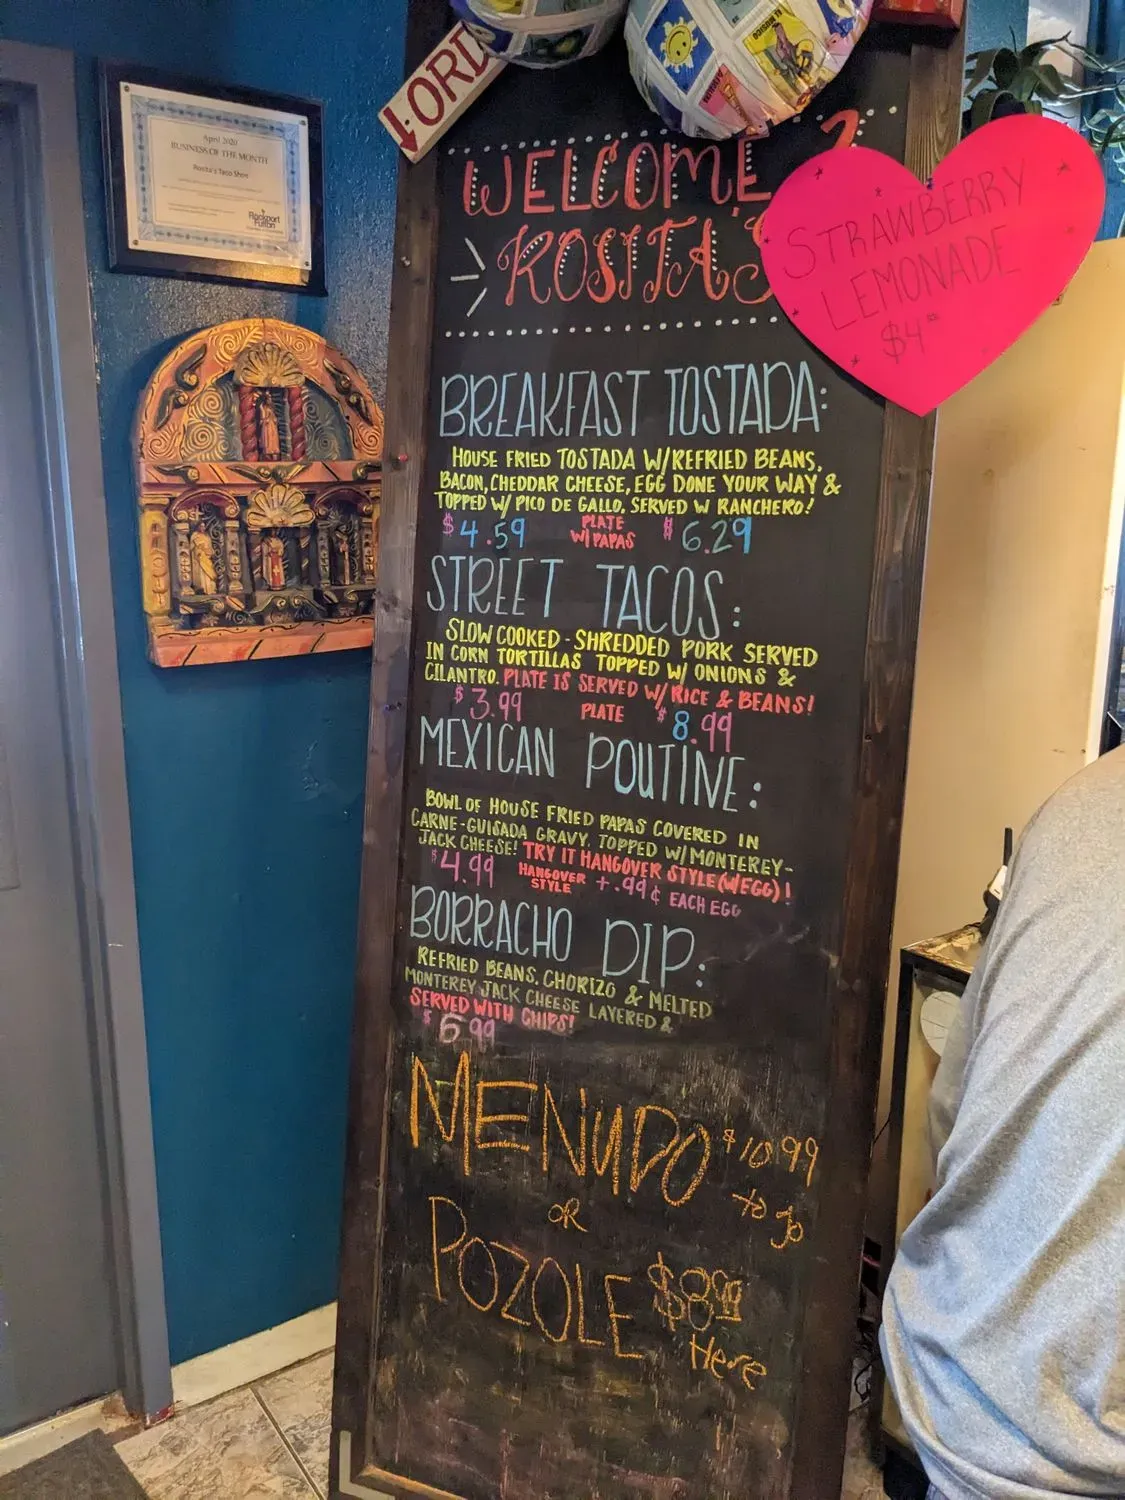 ORD
April 2020
BUSINESS OF THE MONTH
Rosita's Taco Shop
Rockport
Fulton
WELCOME 2
ROSITA'S
STRAWBERRY
LEMONADE
$4
BREAKFAST TOSTADA:
HOUSE FRIED TOSTADA W/REFRIED BEANS,
BACON, CHEDDAR CHEESE, EGG DONE YOUR WAY &
TOPPED W/ PICO DE GALLO, SERVED W RANCHERO!
$4.59 PLATE W/ PAPAS $6.29
STREET TACOS:
SLOW COOKED - SHREDDED PORK SERVED
IN CORN TORTILLAS TOPPED W/ ONIONS &
CILANTRO. PLATE IS SERVED W/ RICE & BEANS!
$3.99 PLATE $8.99
MEXICAN POUTINE:
BOWL OF HOUSE FRIED PAPAS COVERED IN
CARNE-GUISADA GRAVY, TOPPED W/ MONTEREY-
JACK CHEESE! TRY IT HANGOVER STYLE (W/EGG)!
$4.99 HANGOVER STYLE +.99¢ EACH EGG
BORRACHO DIP:
REFRIED BEANS, CHORIZO & MELTED
MONTEREY JACK CHEESE LAYERED &
SERVED WITH CHIPS!
$6.99
MENUDO $10.99
to go
OR
POZOLE $8.99
Here